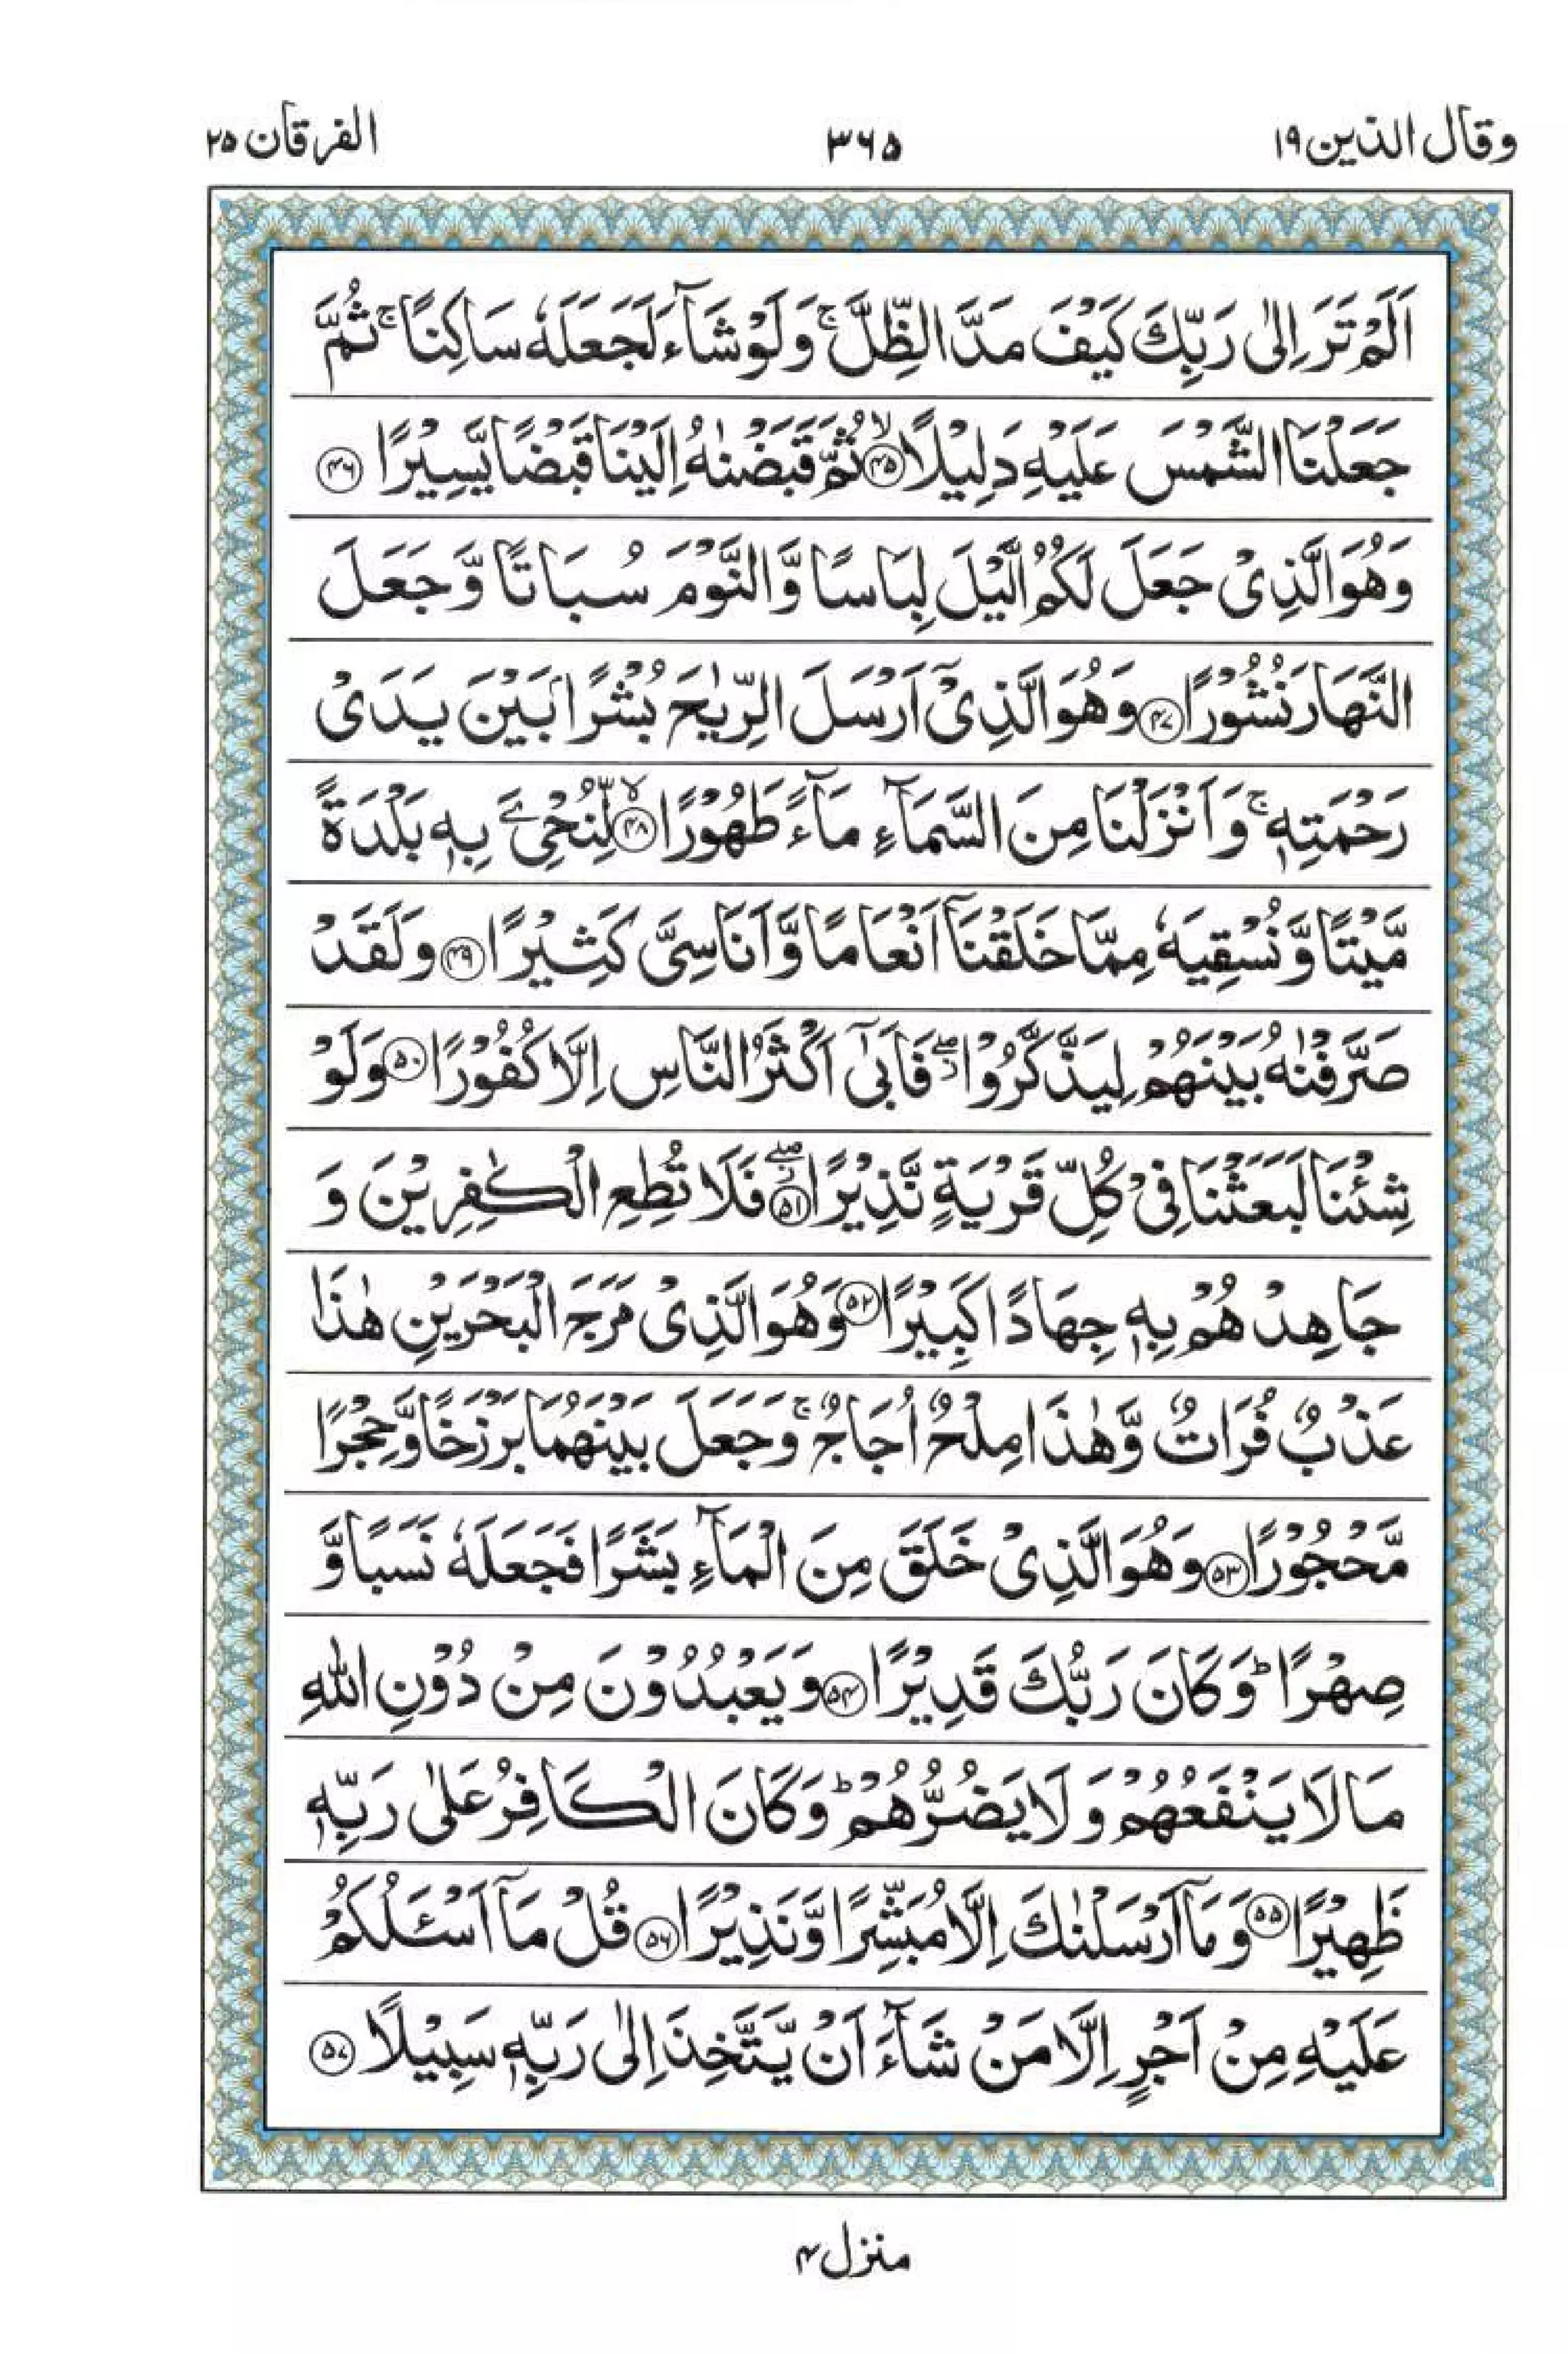 وقال الذین ۱۹
۳۶۵
الفرقان ۲۵
اَلَمْ تَرَ اِلٰى رَبِّكَ كَيْفَ مَدَّ الظِّلَّ ۚ وَلَوْ شَآءَ لَجَعَلَهٗ سَاكِنًا ۚ ثُمَّ
جَعَلْنَا الشَّمْسَ عَلَيْهِ دَلِيْلًا ۙ﴿۴۵﴾ ثُمَّ قَبَضْنٰهُ اِلَيْنَا قَبْضًا يَّسِيْرًا ﴿۴۶﴾
وَهُوَ الَّذِىْ جَعَلَ لَكُمُ الَّيْلَ لِبَاسًا وَّالنَّوْمَ سُبَاتًا وَّجَعَلَ
النَّهَارَ نُشُوْرًا ﴿۴۷﴾ وَهُوَ الَّذِىْۤ اَرْسَلَ الرِّيٰحَ بُشْرًۢا بَيْنَ يَدَىْ
رَحْمَتِهٖ ۚ وَاَنْزَلْنَا مِنَ السَّمَآءِ مَآءً طَهُوْرًا ۙ﴿۴۸﴾ لِّنُحْیِۦَ بِهٖ بَلْدَةً
مَّيْتًا وَّنُسْقِيَهٗ مِمَّا خَلَقْنَاۤ اَنْعَامًا وَّاَنَاسِىَّ كَثِيْرًا ﴿۴۹﴾ وَلَقَدْ
صَرَّفْنٰهُ بَيْنَهُمْ لِيَذَّكَّرُوْا ۖ فَاَبٰۤى اَكْثَرُ النَّاسِ اِلَّا كُفُوْرًا ﴿۵۰﴾ وَلَوْ
شِئْنَا لَبَعَثْنَا فِىْ كُلِّ قَرْيَةٍ نَّذِيْرًا ۖ﴿۵۱﴾ فَلَا تُطِعِ الْكٰفِرِيْنَ وَ
جَاهِدْهُمْ بِهٖ جِهَادًا كَبِيْرًا ﴿۵۲﴾ وَهُوَ الَّذِىْ مَرَجَ الْبَحْرَيْنِ هٰذَا
عَذْبٌ فُرَاتٌ وَّهٰذَا مِلْحٌ اُجَاجٌ ۚ وَجَعَلَ بَيْنَهُمَا بَرْزَخًا وَّحِجْرًا
مَّحْجُوْرًا ﴿۵۳﴾ وَهُوَ الَّذِىْ خَلَقَ مِنَ الْمَآءِ بَشَرًا فَجَعَلَهٗ نَسَبًا وَّ
صِهْرًا ؕ وَكَانَ رَبُّكَ قَدِيْرًا ﴿۵۴﴾ وَيَعْبُدُوْنَ مِنْ دُوْنِ اللّٰهِ
مَا لَا يَنْفَعُهُمْ وَلَا يَضُرُّهُمْ ؕ وَكَانَ الْكَافِرُ عَلٰى رَبِّهٖ
ظَهِيْرًا ﴿۵۵﴾ وَمَاۤ اَرْسَلْنٰكَ اِلَّا مُبَشِّرًا وَّنَذِيْرًا ﴿۵۶﴾ قُلْ مَاۤ اَسْـَٔلُكُمْ
عَلَيْهِ مِنْ اَجْرٍ اِلَّا مَنْ شَآءَ اَنْ يَّتَّخِذَ اِلٰى رَبِّهٖ سَبِيْلًا ﴿۵۷﴾
منزل ۴